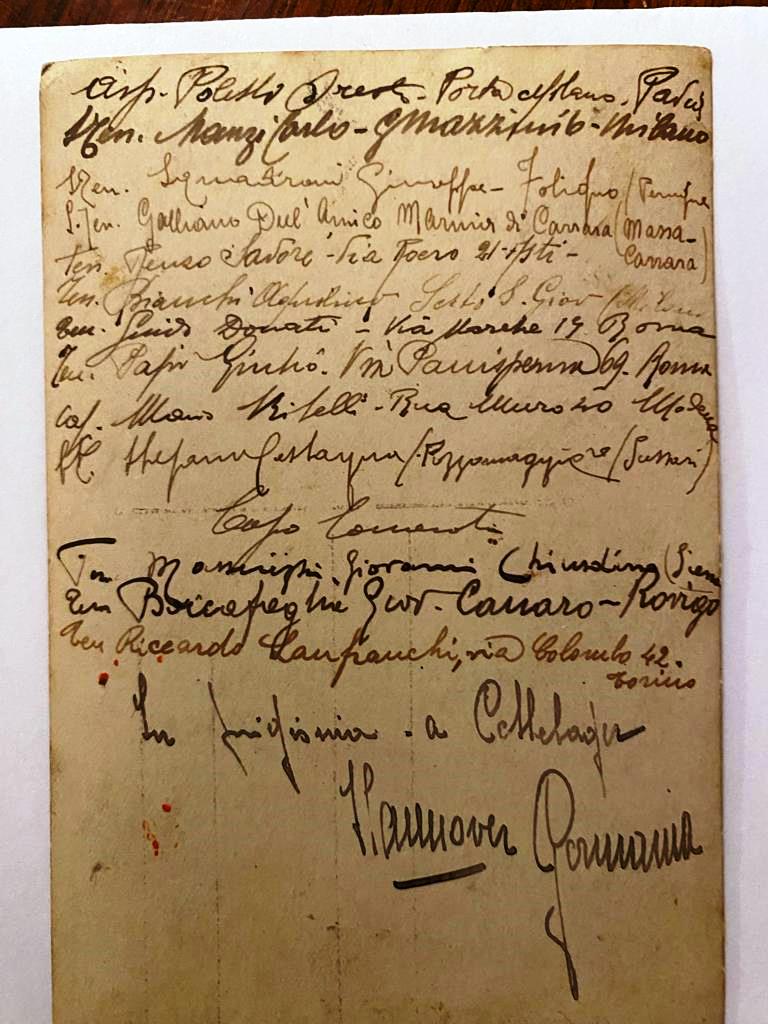 Asp. Poletto Oreste - Porta Milano. Padova
S.Ten. Manzi Carlo - G Mazzini 6 - Milano
S.Ten. Giuseppe - Foligno (Perugia
S.Ten. Galliano Dell'Amico Marina di Carrara (Massa-
Carrara)
Ten. Renzo Savore - Via Roero 21 - Asti -
Ten. Bianchi Agostino Sesto S. Giov (Milano
Ten. Guido Donati - Via Marche 19 Roma
Ten. Papi Giulio. Via Panisperna 69. Roma
Cap. Mario Ritelli - Rua Muro 20 Modena
Stefano Castagna (Pozzomaggiore (Sassari)
Capo Camerata
Ten Giovanni Chiusdino (Siena
Ten Boccafoglie Giov. Canaro - Rovigo
Ten Riccardo Lanfranchi, via Colombo 42.
Torino
In prigionia - a Cellelager
Hannover Germania